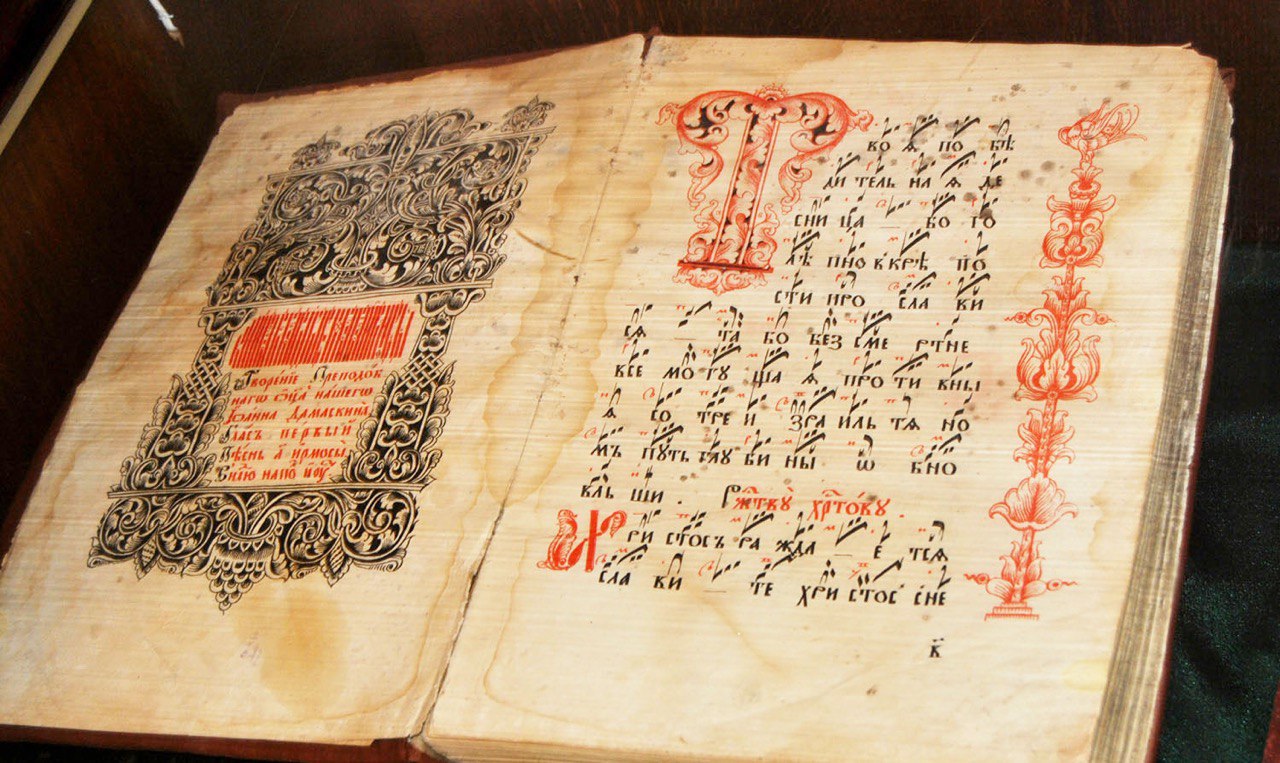 Творенїе Преподоб
наго ѻц҃а нашегѡ
Іѡанна Дамаскина
Гласъ первый
Пѣснь а҃ ирмосы
Т во ѧ по бѣ
ди тель на ѧ де
сни ца бо го
лѣ пно в крѣ по
сти про сла ви
сѧ та бо без сме ртне
все мо гу ща ѧ про ти вны
ѧ со тре и зра иль тѧ но
мъ путь глу би ны ѡ бно
вль ши . Рж҃твꙋ̀ хр҃то́вꙋ .
Х ри стосъ ра жда е тсѧ
сла ви те хри стос сне
в҃